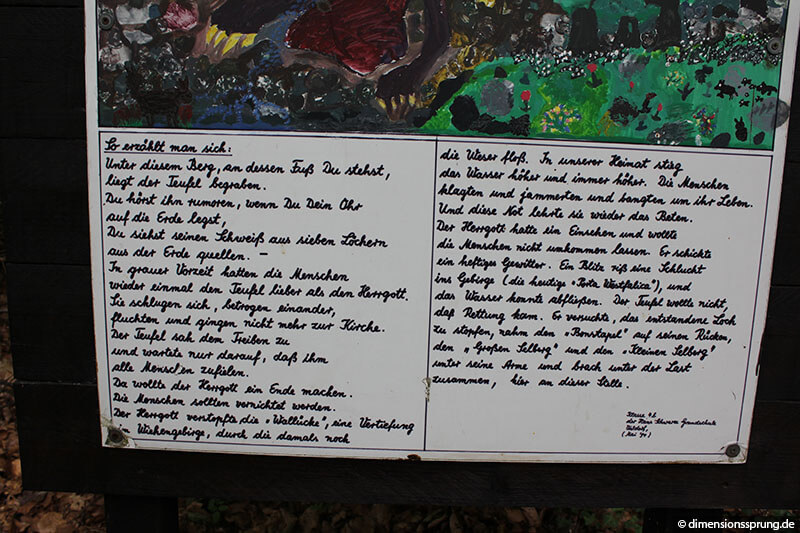 So erzählt man sich:
Unter diesem Berg, an dessen Fuß Du stehst,
liegt der Teufel begraben.
Du hörst ihn rumoren, wenn Du Dein Ohr
auf die Erde legst,
Du siehst seinen Schweiß aus sieben Löchern
aus der Erde quellen. –
In grauer Vorzeit hatten die Menschen
wieder einmal den Teufel lieber als den Herrgott.
Sie schlugen sich, betrogen einander,
fluchten und gingen nicht mehr zur Kirche.
Der Teufel sah dem Treiben zu
und wartete nur darauf, daß ihm
alle Menschen zufielen.
Da wollte der Herrgott ein Ende machen.
Die Menschen sollten vernichtet werden.
Der Herrgott verstopfte die „Wallücke", eine Vertiefung
im Wiehengebirge, durch die damals noch
die Weser floß. In unserer Heimat stieg
das Wasser höher und immer höher. Die Menschen
klagten und jammerten und bangten um ihr Leben.
Und diese Not lehrte sie wieder das Beten.
Der Herrgott hatte ein Einsehen und wollte
die Menschen nicht umkommen lassen. Er schickte
ein heftiges Gewitter. Ein Blitz riß eine Schlucht
ins Gebirge (die heutige „Porta Westfalica"), und
das Wasser konnte abfließen. Der Teufel wollte nicht,
daß Rettung kam. Er versuchte, das entstandene Loch
zu stopfen, nahm den „Bonstapel" auf seinen Rücken,
den „Großen Selberg" und den „Kleinen Selberg"
unter seine Arme und brach unter der Last
zusammen, hier an dieser Stelle.
Klasse 4b
der Grundschule
(Mai '90)
© dimensionssprung.de